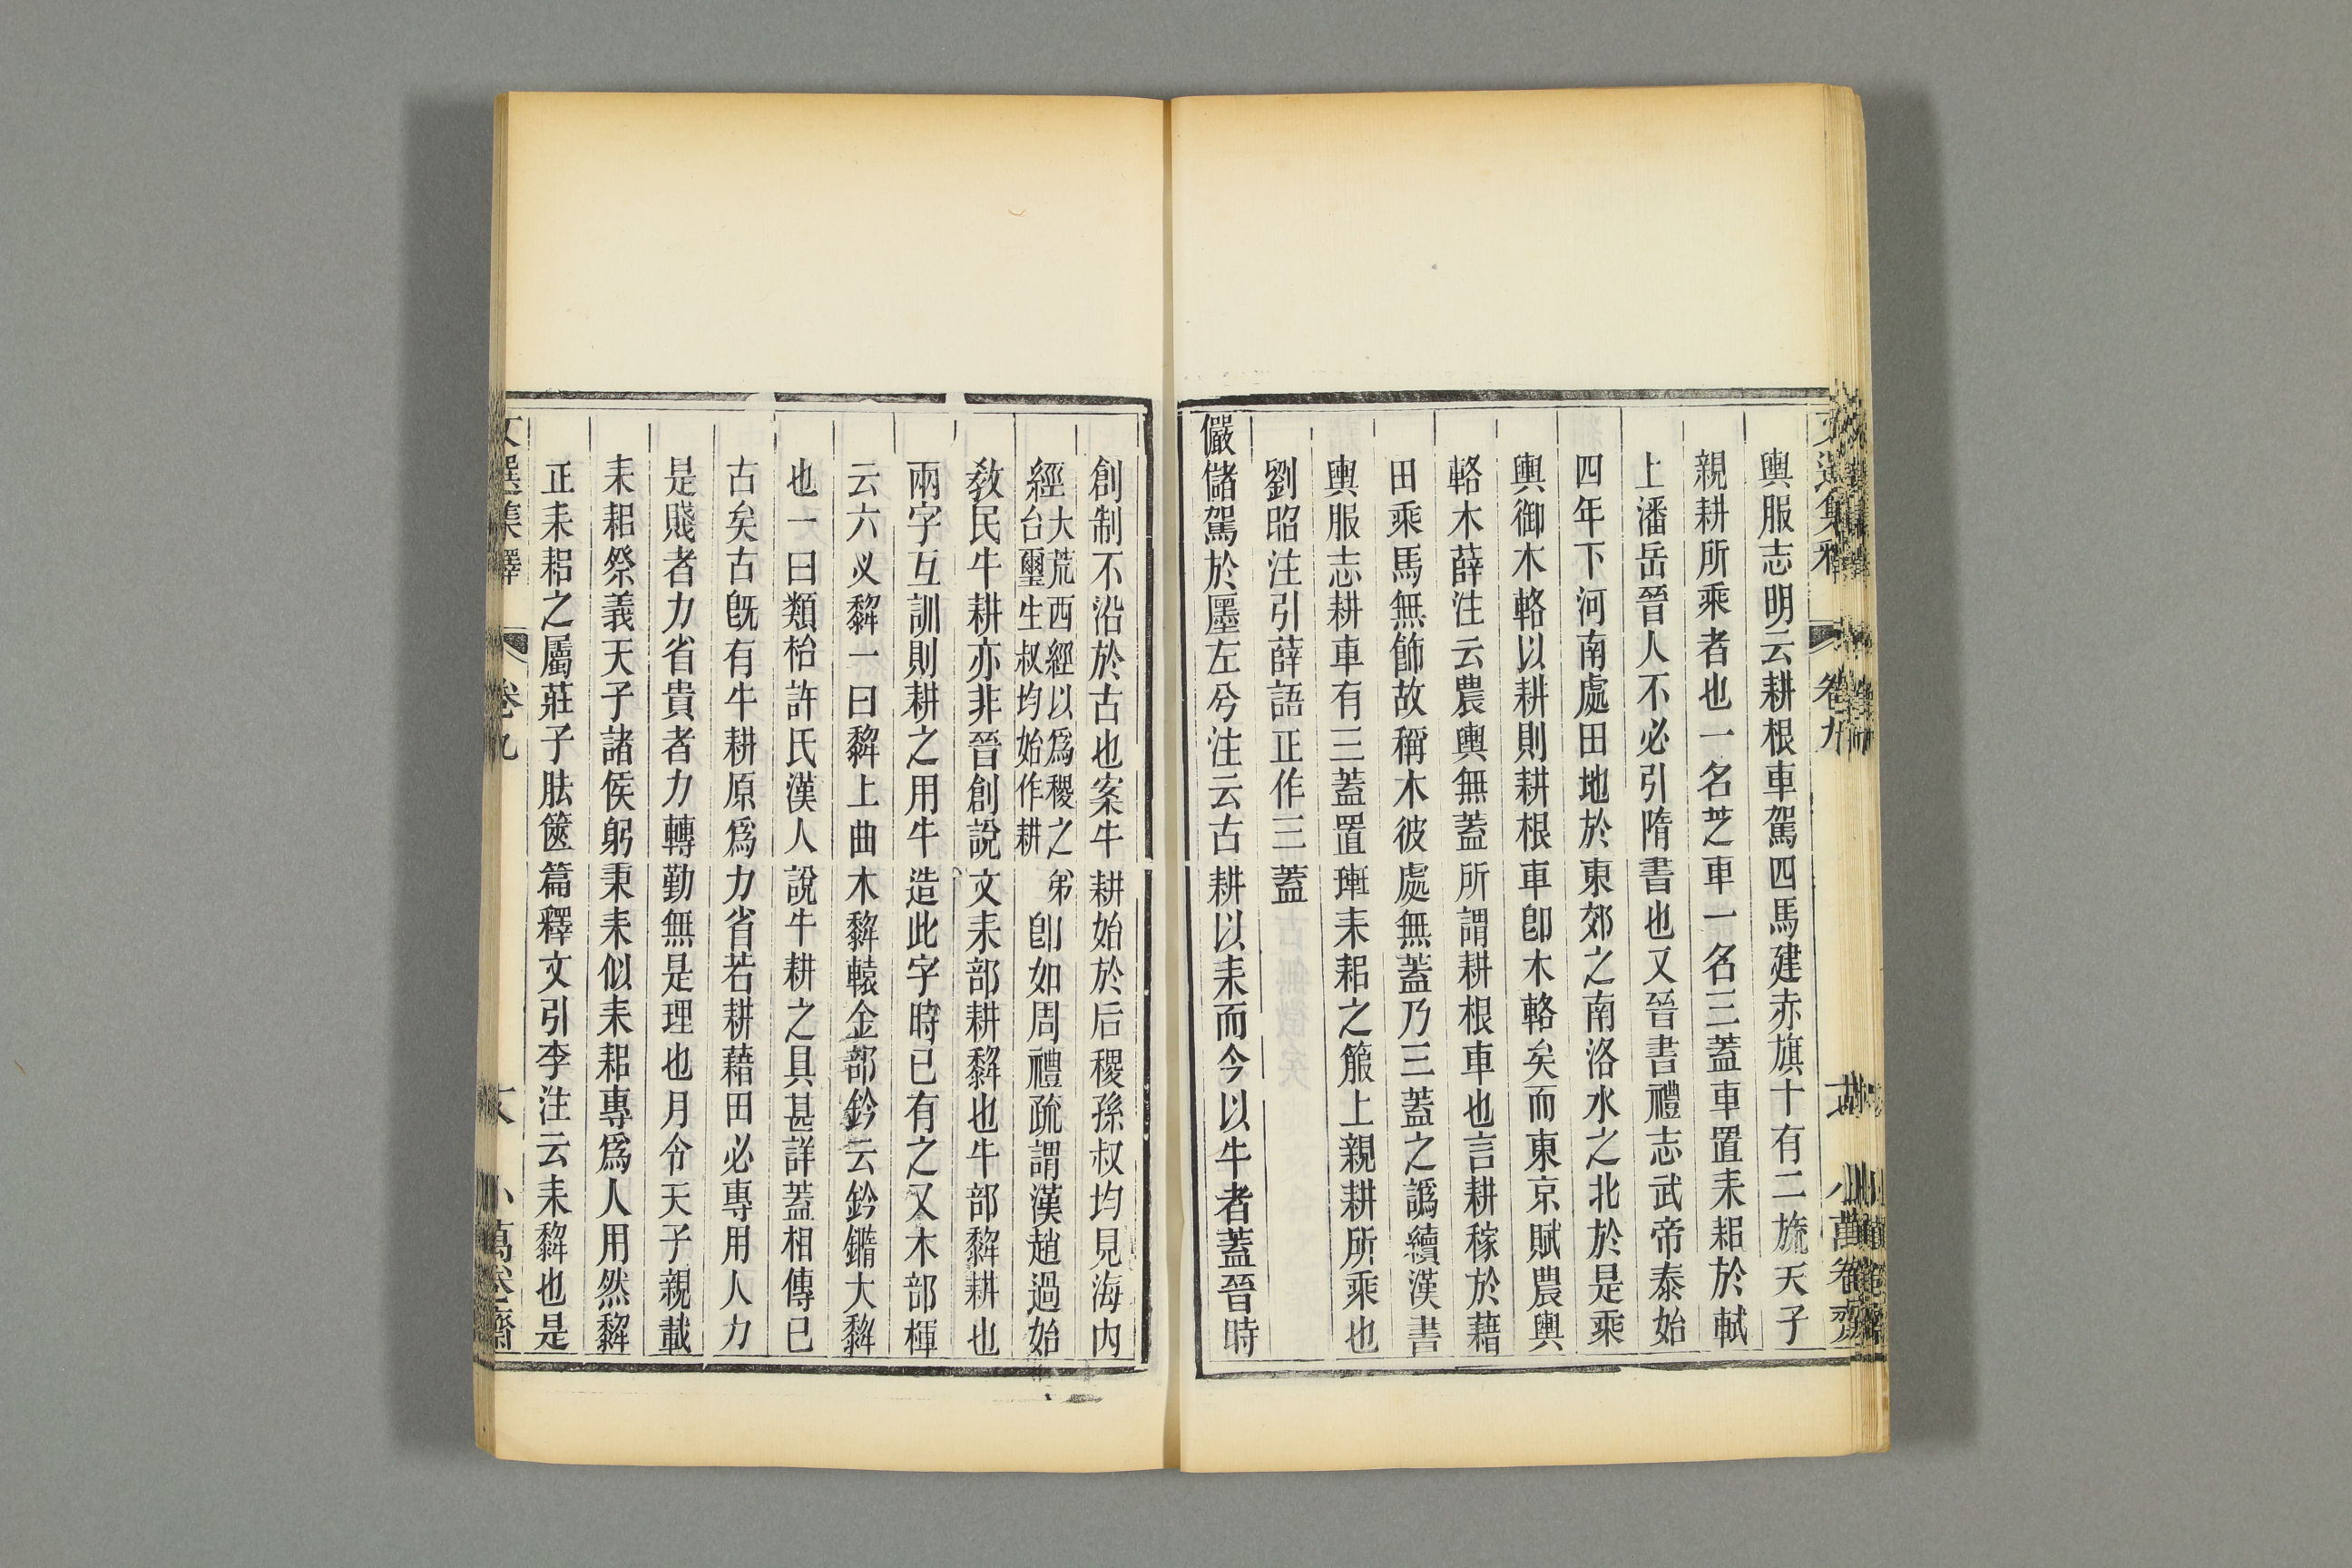 輿服志明云耕根車駕四馬建赤旗十有二旒天子
親耕所乘者也一名芝車一名三蓋車置耒耜於軾
上潘岳晉人不必引隋書也又晉書禮志武帝泰始
四年下河南處田地於東郊之南洛水之北於是乘
輿御木輅以耕則耕根車卽木輅矣而東京賦農輿
輅木薛注云農輿無蓋所謂耕根車也言耕稼於藉
田乘馬無飾故稱木彼處無蓋乃三蓋之譌續漢書
輿服志耕車有三蓋置㻝耒耜之箙上親耕所乘也
劉昭注引薛語正作三蓋
儼儲駕於廛左兮注云古耕以耒而今以牛者蓋晉時
創制不沿於古也案牛耕始於后稷孫叔均見海內
經大荒西經以爲稷之弟台璽生叔均始作耕卽如周禮疏謂漢趙過始
敎民牛耕亦非晉創說文耒部耕犂也牛部犂耕也
兩字互訓則耕之用牛造此字時已有之又木部楎
云六叉犂一曰犂上曲木犂轅金部鈐云鈐鏅大犂
也一曰類枱許氏漢人說牛耕之具甚詳蓋相傳已
古矣古旣有牛耕原爲力省若耕藉田必專用人力
是賤者力省貴者力轉勤無是理也月令天子親載
耒耜祭義天子諸侯躬秉耒似耒耜專爲人用然犂
正耒耜之屬莊子胠篋篇釋文引李注云耒犂也是
文選集釋
卷九
小萬卷齋